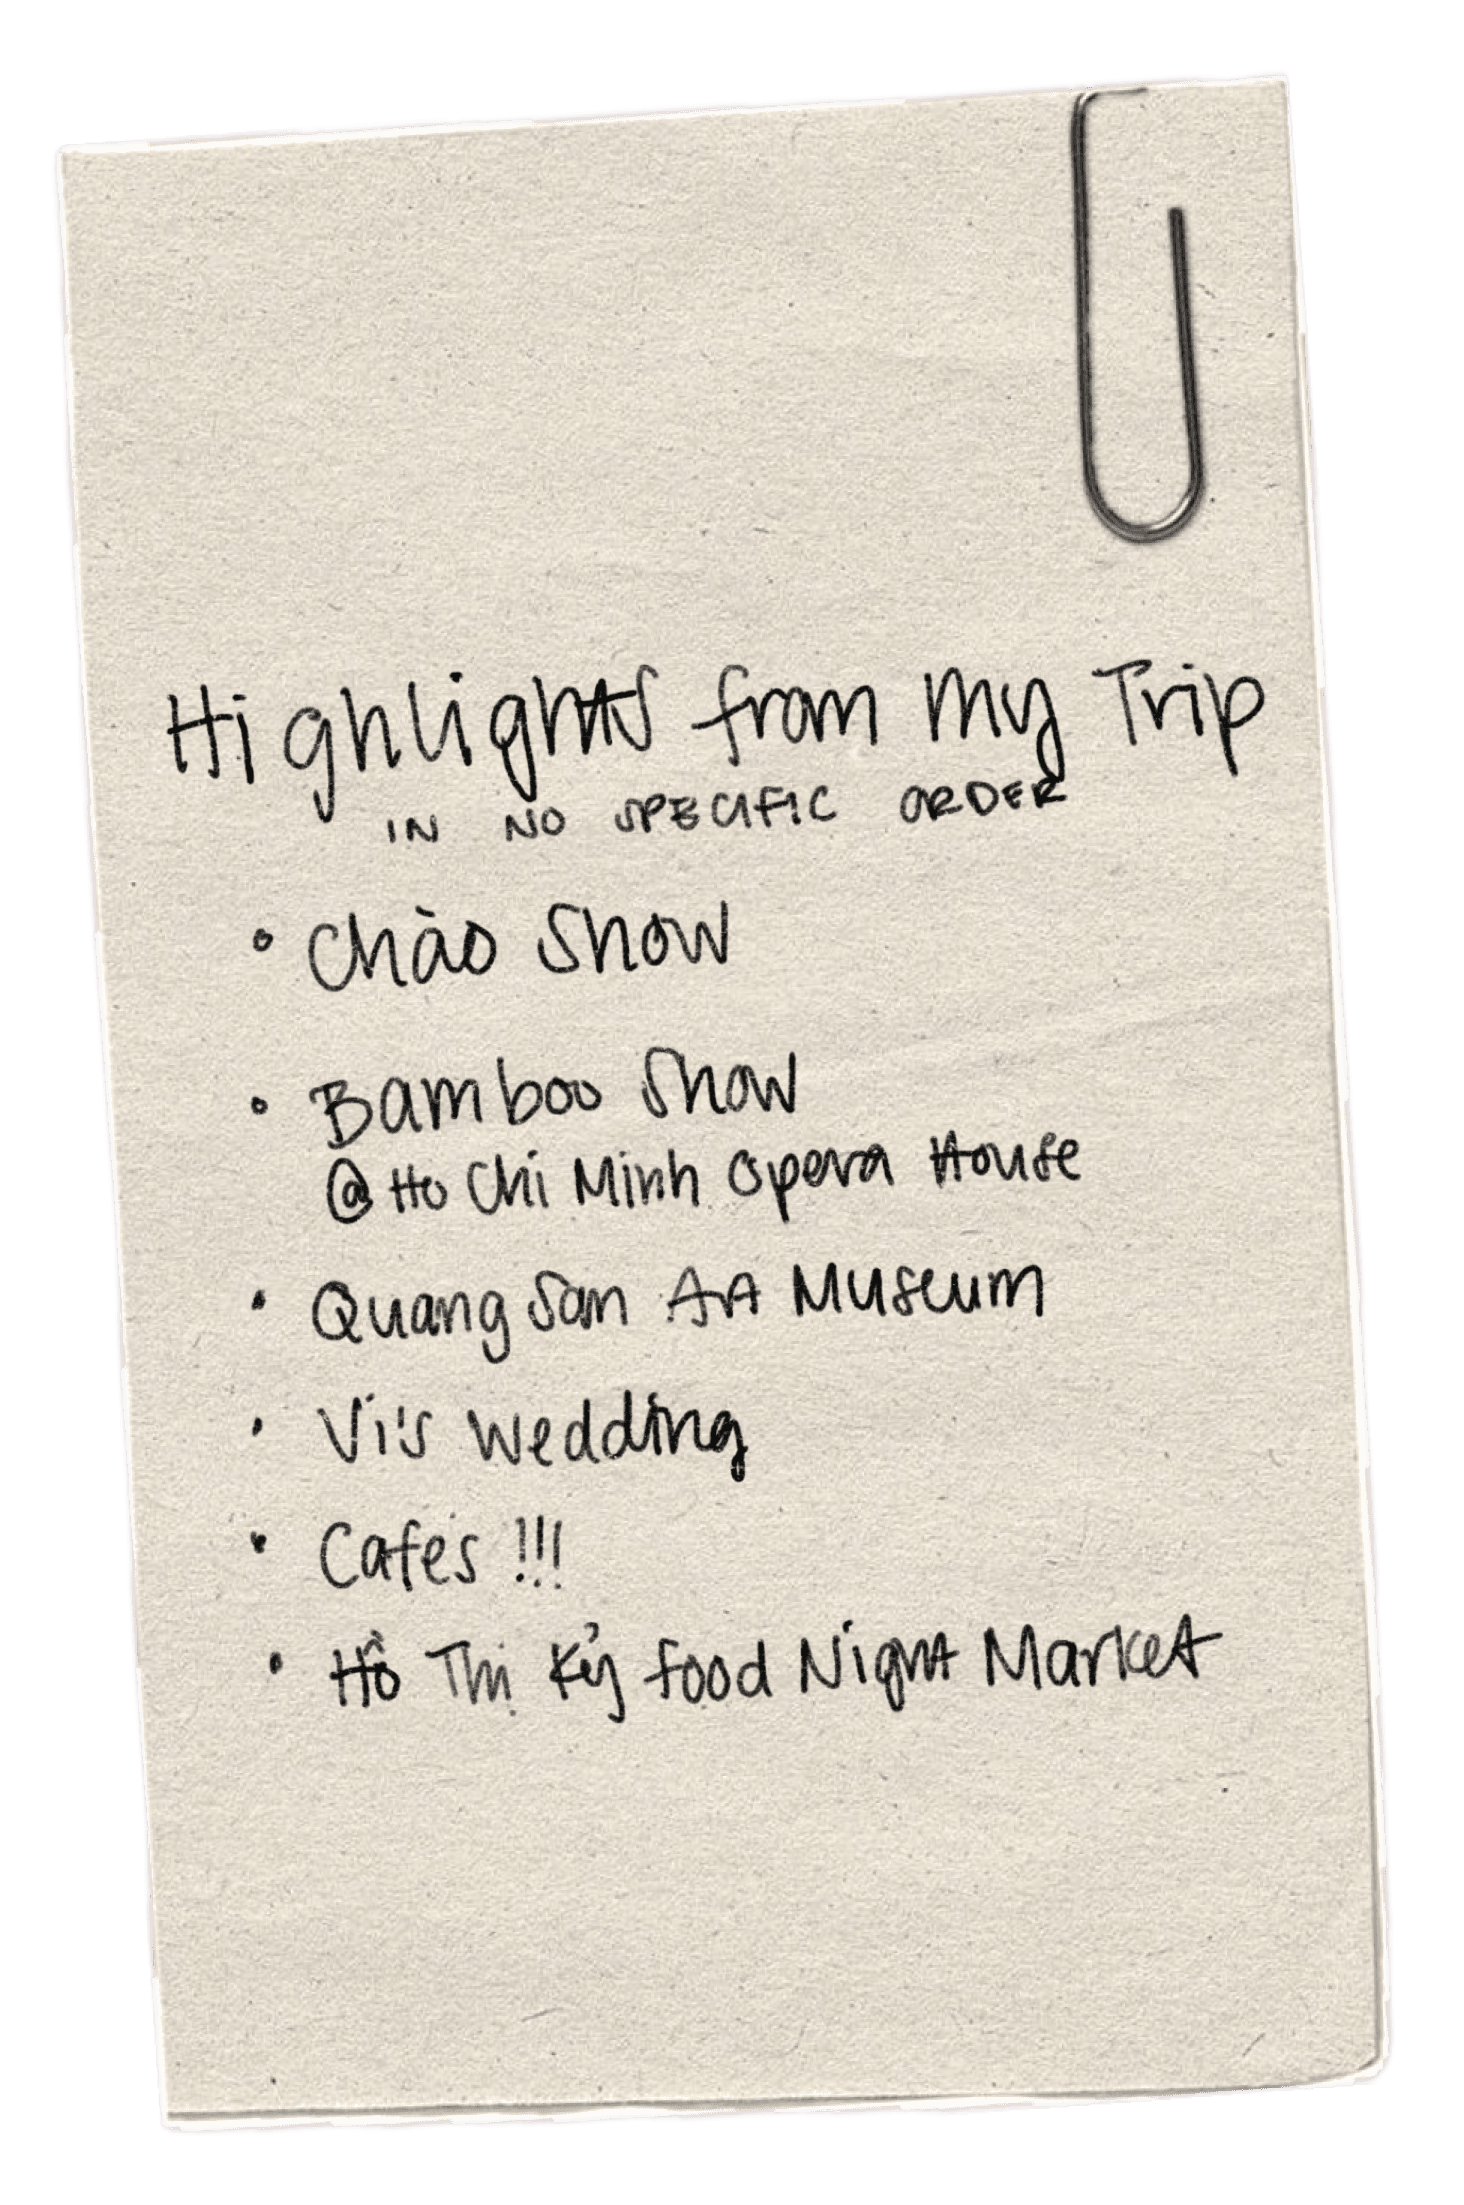 Highlights from My Trip
IN NO SPECIFIC ORDER
• Chào Show
• Bamboo Show
@ Ho Chi Minh Opera House
• Quang San Art Museum
• Vi's Wedding
• Cafes !!!
• Hồ Thị Kỷ Food Night Market